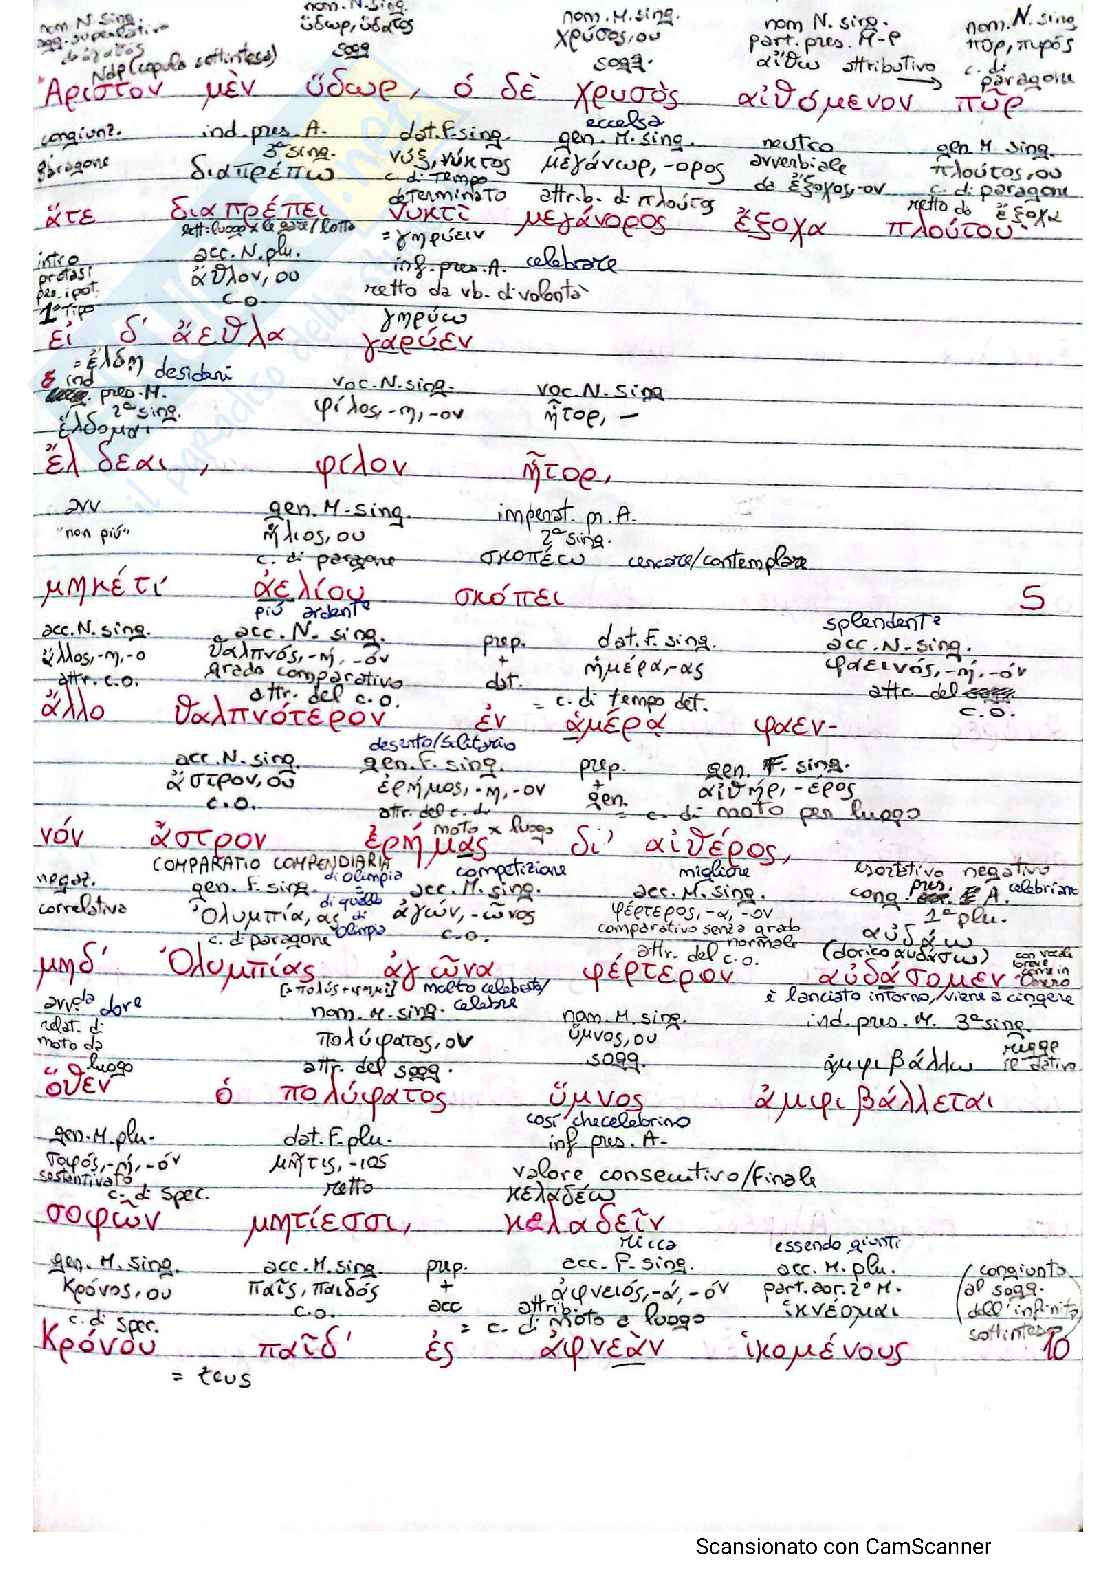 nom N. Sing. nom. N. Sing. nom. M. sing. nom N. sing. nom. N. sing
agg. superlativo ὕδωρ, ὕδατος χρύσος, ου part. pres. M-P πῦρ, πυρός
da ἀγατος sogg sogg. αἴθω attributivo c. di
Ndp (copula sottintesa) paragone
Ἄριστον μὲν ὕδωρ, ὁ δὲ χρυσὸς αἰθόμενον πῦρ
eccelsa
congiunz. ind. pres. A. dat. F. sing. gen. M. sing. neutro gen M. sing.
paragone 3ª sing. νύξ, νύκτος μεγάνωρ, -ορος avverbiale πλούτος, ου
διαπρέπω c. di tempo da ἔξοχος, -ον c. di paragone
determinato attrib. di πλούτος retto da ἔξοχα
ἅτε διαπρέπει νυκτὶ μεγάνορος ἔξοχα πλούτου·
= γηρύειν
intro acc. N. plu. inf. pres. A. celebrare
protasi ἄθλον, ου retto da vb. di volontà
per. ipot. c.o.
1° tipo γηρύω
εἰ δ' ἄεθλα γαρύεν
= ἔλδῃ desideri
ind voc. N. sing. voc. N. sing
pres. M. φίλος, -η, -ον ἦτορ, –
2ª sing.
ἔλδομαι
ἔλδεαι, φίλον ἦτορ,
avv gen. M. sing. imperat. p. A.
"non più" ἥλιος, ου 2ª sing.
c. di paragone σκοπέω cercare/contemplare
μηκέτι ἀελίου σκόπει 5
più ardente splendente
acc. N. sing. acc. N. sing. prep. dat. F. sing. acc. N. sing.
ἄλλος, -η, -ο θαλπνός, -ή, -όν + ἡμέρα, -ας φαεινός, -ή, -όν
attr. c.o. grado comparativo dat. = c. di tempo det. attr. del
attr. del c.o. c.o.
ἄλλο θαλπνότερον ἐν ἁμέρᾳ φαεν-
deserto/solitario
acc. N. sing. gen. F. sing. prep. gen. F. sing.
ἄστρον, ου ἐρήμος, -η, -ον + αἰθήρ, -έρος
c.o. attr. del c. di gen. = c. di moto per luogo
moto x luogo
νόν ἄστρον ἐρήμας δι' αἰθέρος,
COMPARATIO COMPENDIARIA competizione migliore esortativo negativo
negaz. gen. F. sing. di olimpia acc. M. sing. acc. M. sing. cong. pres. A. celebriamo
correlativa Ὀλυμπία, ας di quella di olimpia ἀγών, -ῶνος φέρτερος, -α, -ον 1ª plu.
c. di paragone c.o. comparativo senza grado normale αὐδάω
attr. del c.o. (dorico αὐδάσω)
μηδ' Ὀλυμπίας ἀγῶνα φέρτερον αὐδάσομεν
[πολύς + φημί] molto celebrato/ è lanciato intorno, viene a cingere
avv. da dove nom. M. sing. celebre nom. M. sing. ind. pres. M. 3ª sing.
relat. di πολύφατος, ον ὕμνος, ου regge
moto da attr. del sogg. sogg. ἀμφιβάλλω il dativo
luogo
ὅθεν ὁ πολύφατος ὕμνος ἀμφιβάλλεται
così che celebrino
gen. M. plu. dat. F. plu. inf pres. A.
σοφός, -ή, -όν μῆτις, -ιος valore consecutivo/finale
sostantivato retto κελαδέω
c. di spec.
σοφῶν μητίεσσι, κελαδεῖν
ricca essendo giunti
gen. M. sing. acc. M. sing. prep. acc. F. sing. acc. M. plu. (congiunto
Κρόνος, ου παῖς, παιδός + ἀφνειός, -ά, -όν part. aor. 2° M. al sogg.
c. di spec. c.o. acc attrib. ἱκνέομαι dell'infinito
= c. di moto a luogo sottinteso)
Κρόνου παῖδ' ἐς ἀφνεὰν ἱκομένους 10
= Zeus
Scansionato con CamScanner